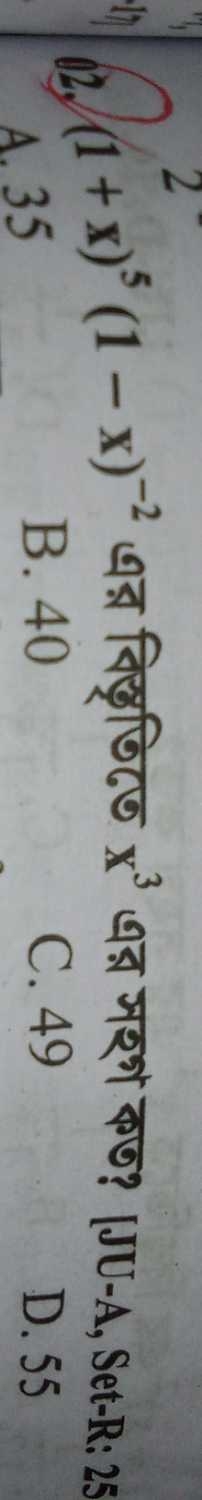 2
02. (1 + x)⁵ (1 – x)⁻² এর বিস্তৃতিতে x³ এর সহগ কত? [JU-A, Set-R: 25
A. 35 B. 40 C. 49 D. 55